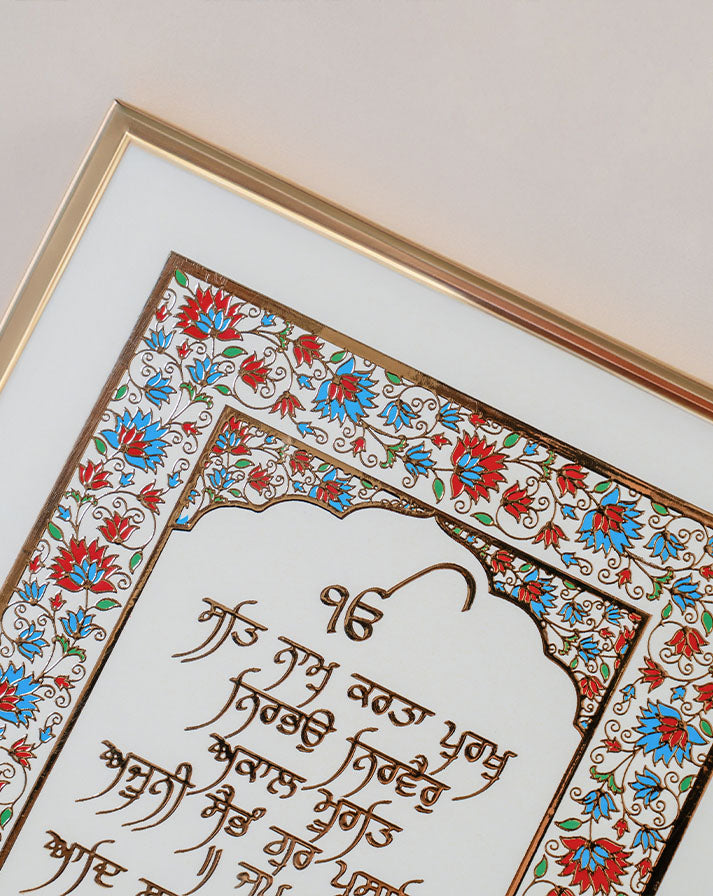 ੴ
ਸਤਿ ਨਾਮੁ ਕਰਤਾ ਪੁਰਖੁ
ਨਿਰਭਉ ਨਿਰਵੈਰੁ
ਅਕਾਲ ਮੂਰਤਿ
ਅਜੂਨੀ ਸੈਭੰ ਗੁਰ
॥
ਆਦਿ